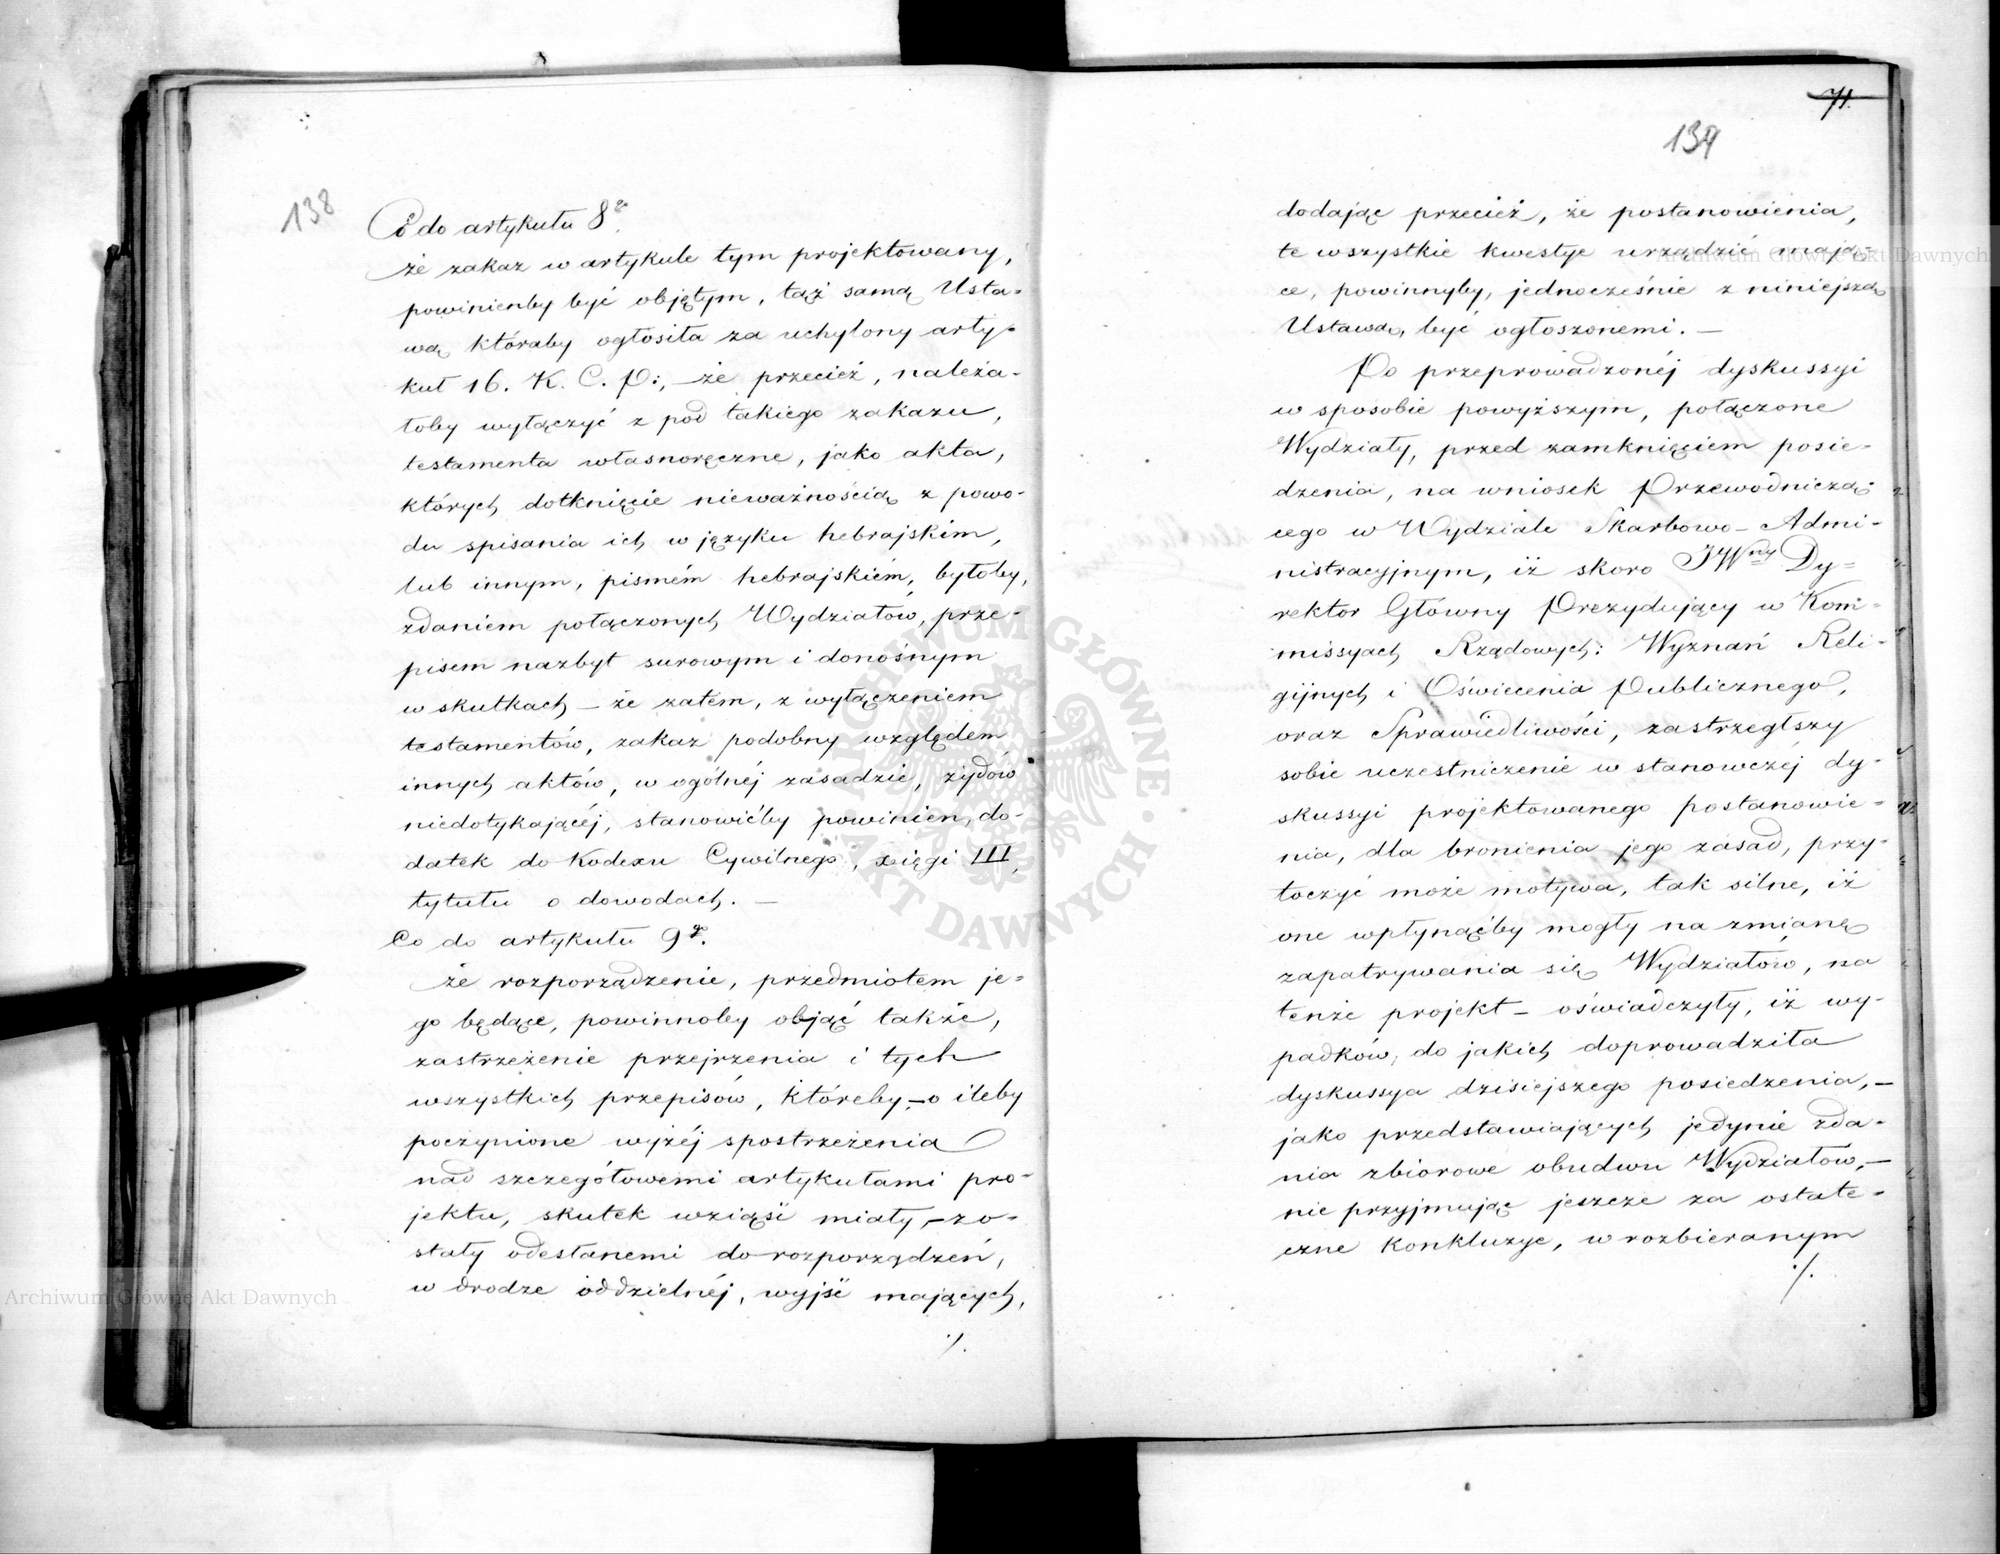 138
Co do artykułu 8go.
że zakaz w artykule tym projektowany,
powinienby być objętym, tąż samą Usta-
wą któraby ogłosiła za uchylony arty-
kuł 16. K. C. P:, — że przecież, należa-
łoby wyłączyć z pod takiego zakazu,
testamenta własnoręczne, jako akta,
których dotknięcie nieważnością z powo-
du spisania ich w języku hebrajskim,
lub innym, pismém hebrajskiém, byłoby,
zdaniem połączonych Wydziałów, prze-
pisem nazbyt surowym i donośnym
w skutkach — że zatem, z wyłączeniem
testamentów, zakaz podobny względem
innych aktów, w ogólnéj zasadzie, żydów
niedotykającéj, stanowićby powinien, do-
datek do Kodexu Cywilnego, xięgi III,
tytułu o dowodach. —
Co do artykułu 9go.
że rozporządzenie, przedmiotem je-
go będące, powinnoby objąć także,
zastrzeżenie przejrzenia i tych
wszystkich przepisów, któreby, — o ileby
poczynione wyżéj spostrzeżenia
nad szczegółowemi artykułami pro-
jektu, skutek wziąść miały, — zo-
stały odesłanemi do rozporządzeń,
w drodze oddzielnéj, wyjść mających,
./.
71.
139
dodając przecież, że postanowienia,
te wszystkie kwestye urządzić mają-
ce, powinnyby, jednocześnie z niniejszą
Ustawą, być ogłoszonemi. —
Po przeprowadzonéj dyskussyi
w sposobie powyższym, połączone
Wydziały, przed zamknięciem posie-
dzenia, na wniosek Przewodniczą-
cego w Wydziale Skarbowo-Admi-
nistracyjnym, iż skoro JWny Dy-
rektor Główny Prezydujący w Kom-
missyach Rządowych: Wyznań Reli-
gijnych i Oświecenia Publicznego,
oraz Sprawiedliwości, zastrzegłszy
sobie uczestniczenie w stanowczéj dy-
skussyi projektowanego postanowie-
nia, dla bronienia jego zasad, przy-
toczyć może motywa, tak silne, iż
one wpłynąćby mogły na zmianę
zapatrywania się Wydziałów, na
tenże projekt — oświadczyły, iż wy-
padków, do jakich doprowadziła
dyskussya dzisiejszego posiedzenia, —
jako przedstawiających jedynie zda-
nia zbiorowe obudwu Wydziałów, —
nie przyjmując jeszcze za ostate-
czne konkluzye, w rozbieranym
./.
Archiwum Główne Akt Dawnych
Archiwum Główne Akt Dawnych
ARCHIWUM GŁÓWNE AKT DAWNYCH